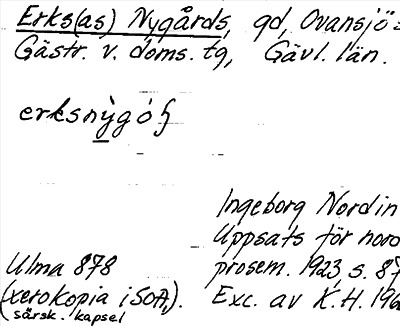 Erks(as) Nygårds, gd, Ovansjö s
Gästr. v. doms. tg, Gävl. län.
erksnỳgóʃ
Ingeborg Nordin
Uppsats för nord
prosem. 1923, s. 87
Exc. av K.H. 196
Ulma 878
(xerokopia i SOA,).
särsk. kapsel